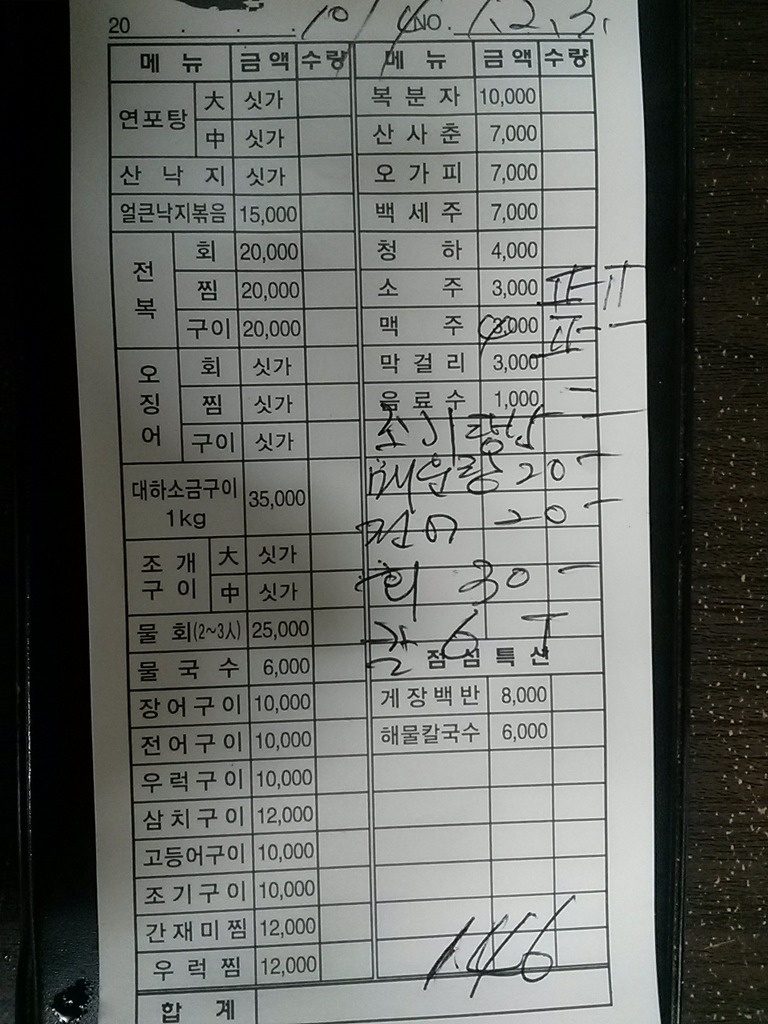 20 . . . 10/4 NO. 1.2.3.
메뉴 금액 수량 메뉴 금액 수량
연포탕 大 싯가 복분자 10,000
中 싯가 산사춘 7,000
산낙지 싯가 오가피 7,000
얼큰낙지볶음 15,000 백세주 7,000
전복 회 20,000 청하 4,000
찜 20,000 소주 3,000
구이 20,000 맥주 3,000
오징어 회 싯가 막걸리 3,000
찜 싯가 음료수 1,000
구이 싯가
대하소금구이 1kg 35,000 매운탕 20 -
전어 20 -
조개구이 大 싯가
中 싯가 회 30 -
물회(2~3人) 25,000
물국수 6,000 점심특선
장어구이 10,000 게장백반 8,000
전어구이 10,000 해물칼국수 6,000
우럭구이 10,000
삼치구이 12,000
고등어구이 10,000
조기구이 10,000
간재미찜 12,000
우럭찜 12,000 146
합계